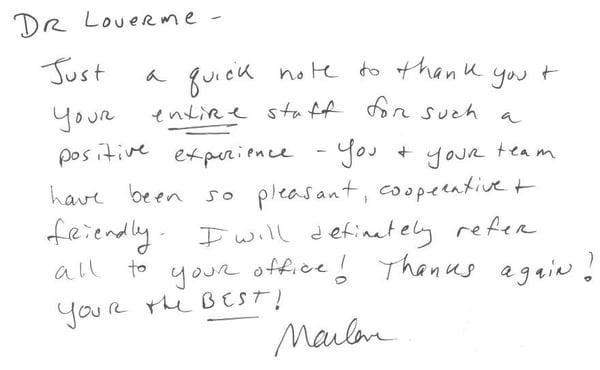 DR LOVERME -
Just a quick note to thank you +
your entire staff for such a
positive experience - you + your team
have been so pleasant, cooperative +
friendly. I will definately refer
all to your office! Thanks again!
your the BEST!
Marlene